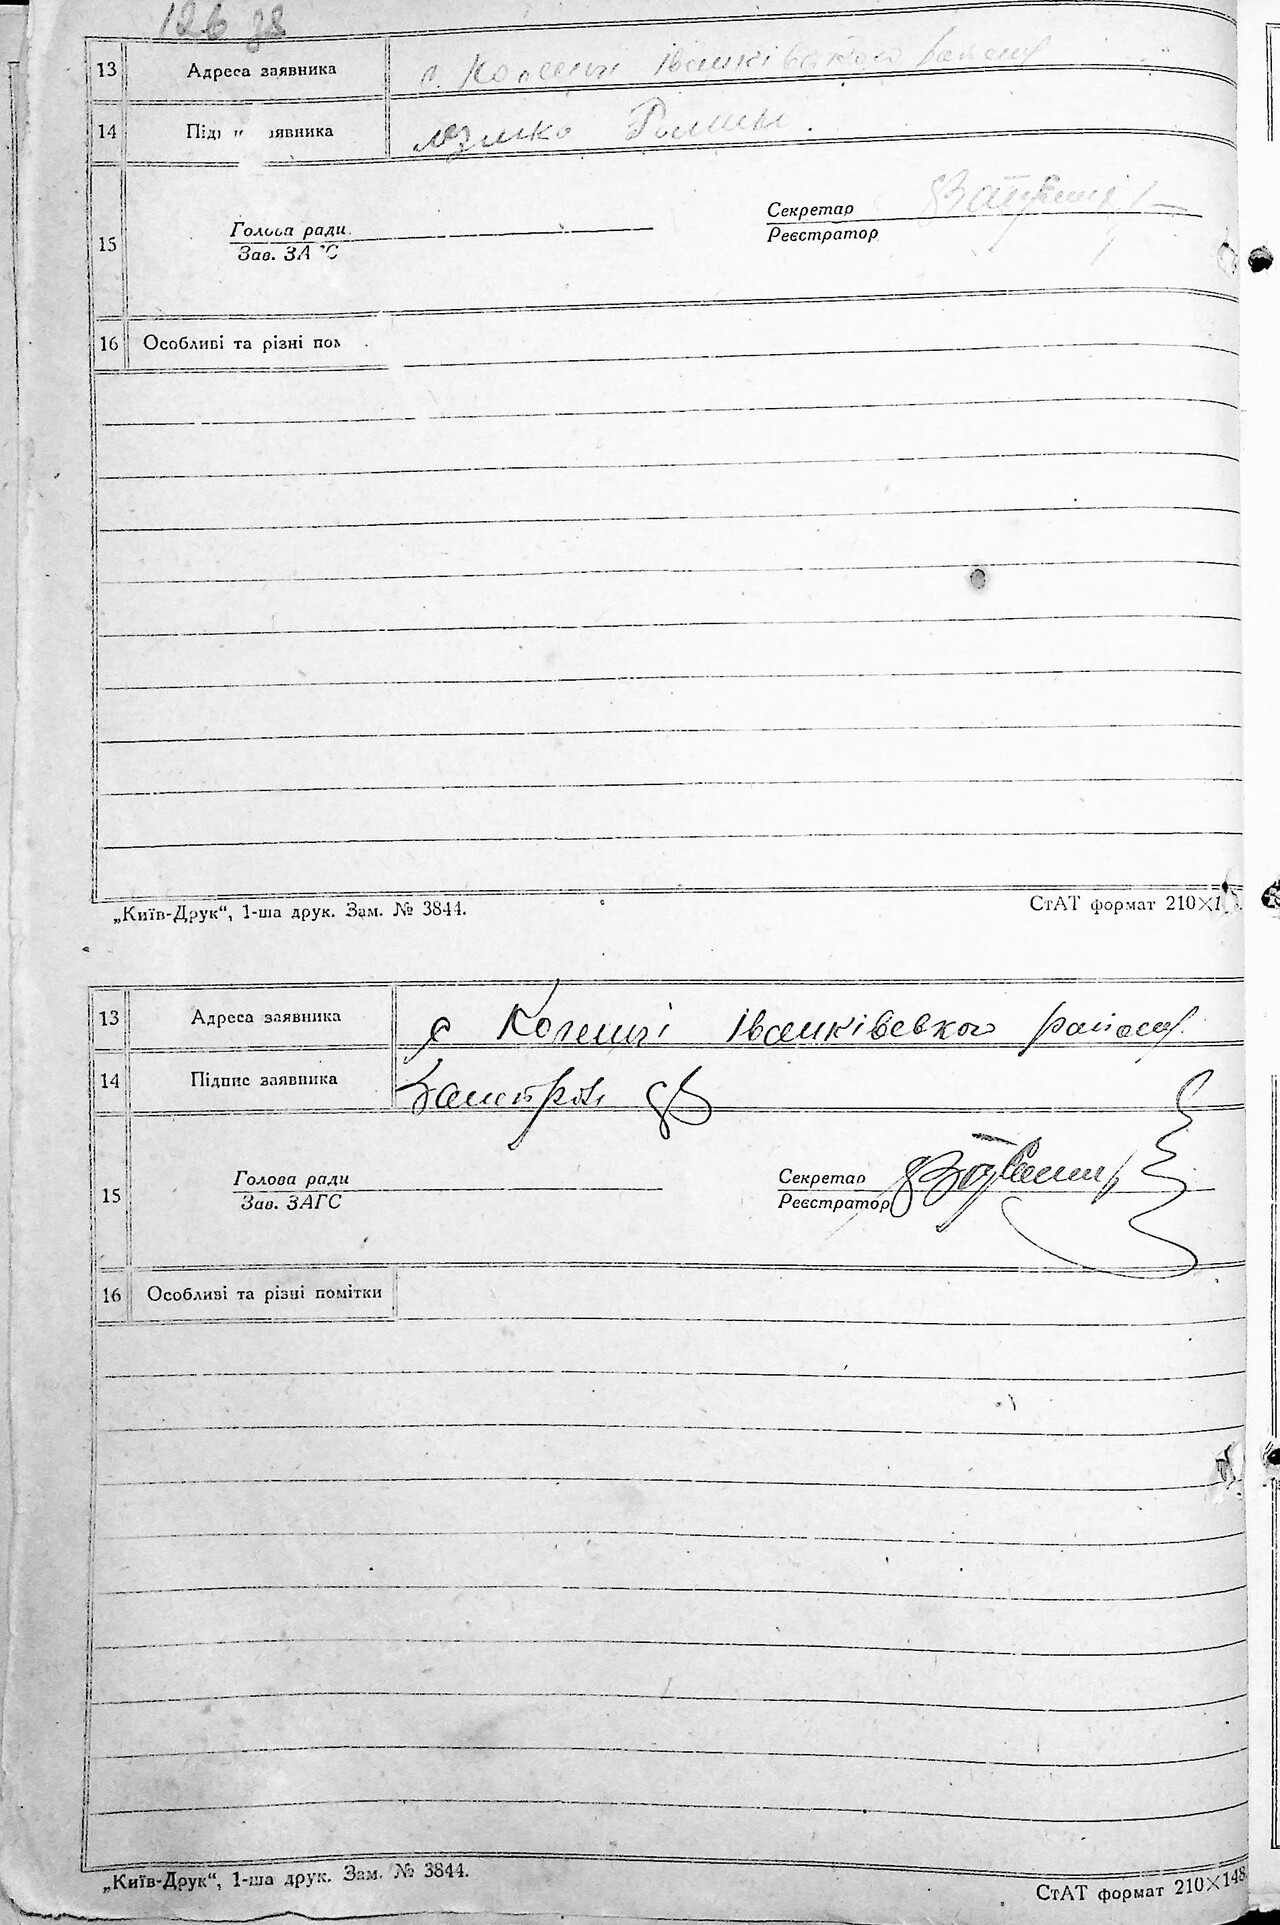 126 зв
13 Адреса заявника с. Коленці Іванківського району
14 заявника
15 Голова ради Секретар
Зав. ЗАГС Реєстратор
16 Особливі та різні пом
„Київ-Друк“, 1-ша друк. Зам. № 3844. СтАТ формат 210×1
13 Адреса заявника с Коленці Іванківського району
14 Підпис заявника
15 Голова ради Секретар
Зав. ЗАГС Реєстратор
16 Особливі та різні помітки
„Київ-Друк“, 1-ша друк. Зам. № 3844. СтАТ формат 210×148